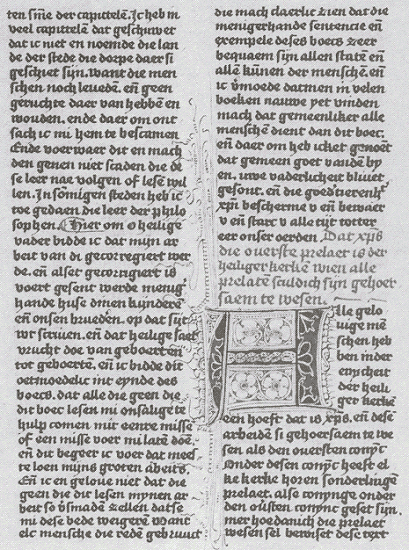 ten sine der capittelē. Ic heb in
veel capittelē dat geschuwet
dat ic niet en noemde die lan
de der stede die dorpe daer si
geschiet sijn. want die men
schen noch leuedē. eñ geen
geruchte daer van hebbē en
wouden. ende daer om ont
sach ic mi hem te bescamen
Ende voerwaer dit en mach
den genen niet scaden die de
se leer nae volgen of lesē wil
len. In sōmigen steden heb ic
toe gedaen die leer der philo
sophen. Hier om o heilige
vader bidde ic dat mijn ar
beit van di gecorrigiert wer
de. eñ alset gecorrigiert is
voert gesent werde menig
hande huse dinen kynderē
eñ onsen brueden. op dat sijt
wt scriuen. eñ dat heilige saet
vrucht doe van geboertē eñ
tot geboertē. eñ ic bidde dit
oetmoedelic int eynde des
boecs. dat alle die geen die
dit boec lesen mi onsalige te
hulp comen mit eenre misse
of een misse voer mi latē doē.
eñ dit begeer ic voer dat meel
te loen mijns groten abeits.
Eñ ic en geloue niet dat die
geen die dit lesen mynen ar
beit so vsmadē zellen datse
mi dese bede weigerē want
elc mensche die redē gebruuct
die mach claerlic zien dat die
menigerhande sentencie eñ
exempele deses boecs zeer
bequaem sijn allen statē eñ
allē kūnen der menschē. eñ
ic vmoede datmen in velen
boeken nauwe yet vinden
mach dat gemeenliker alle
menschē dient dan dit boec.
eñ daer om heb icket genoēt
dat gemeen goet vandē by
en. uwe vaderlicheit bliuet
gesont. eñ die goedertierenhʒ
xpī bescherme v eñ bewaer
v eñ starc v alle tijt totter
eer onser oerden. Dat xpūs
die ouerste prelaet is der
heiliger kerke wien alle
prelatē sculdich sijn gehoer
saem te wesen.
Alle gelo
uige mē
schen heb
ben inder
enicheit
der heili
ger kerke
een hoeft dat is xpūs. eñ dese
arbeidē si gehoersaem te we
sen als den ouersten conyc
Onder desen conyc heeft el
ke kerke horen sonderlingē
prelaet. alse conynge onder
den oūsten conync geset sijn.
mer hoedanich die prelaet
wesen sel bewiset dese text